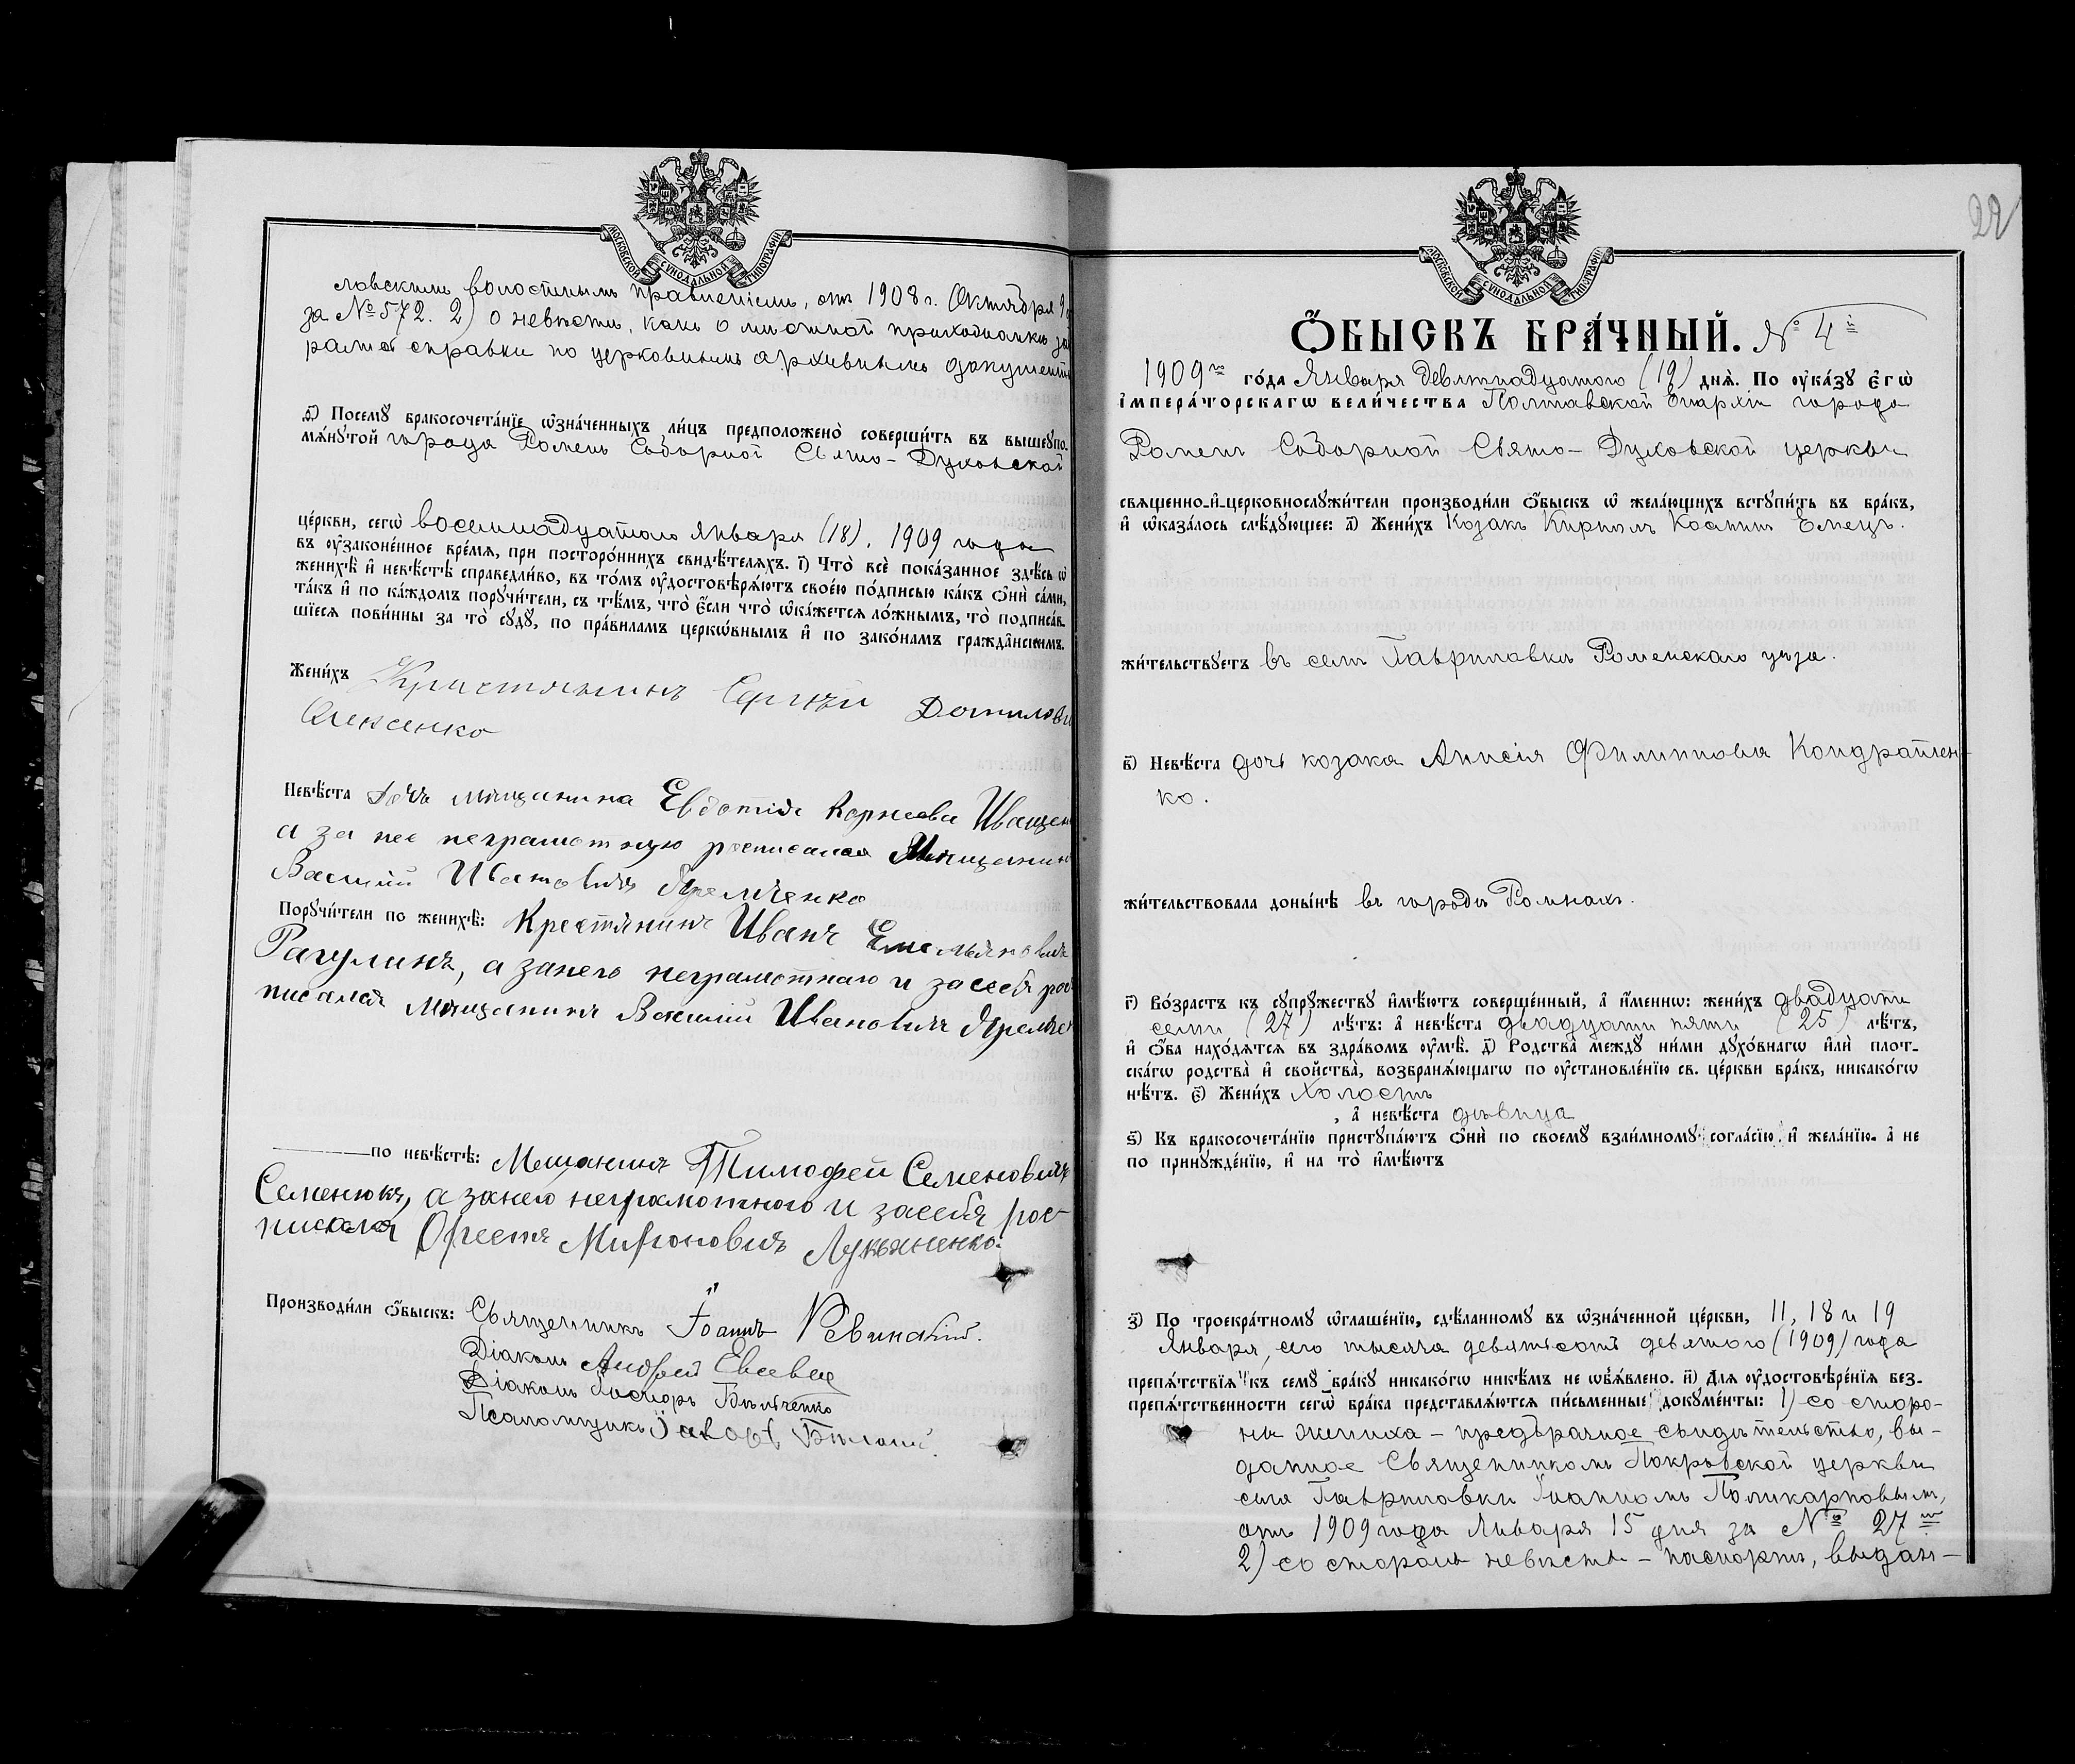 МОСКОВСКОЙ СѴНОДАЛЬНОЙ ТИПОГРАФІИ
ловскимъ волостнымъ правленіемъ, отъ 1908 г. Октября 9
за № 572. 2) о невѣстѣ, какъ о мѣстной прихожанкѣ
справки по церковнымъ архивнымъ документ
д҃) Посемꙋ бракосочета́нїе ѡ҆зна́ченныхъ ли́цъ предположено̀ соверши́ть въ вышеꙋпо-
мѧ́нꙋтой города Роменъ Соборной Свято-Духовской
це́ркви, сегѡ̀ восемнадцатаго Января (18). 1909 года
въ ᲂу҆зако́ненное вре́мѧ, при посторо́ннихъ свидѣ́телѧхъ. і҃) Что̀ всѐ пока́занное здѣ́сь ѡ҆
женихѣ̀ и҆ невѣ́стѣ справедли́во, въ то́мъ ᲂу҆достовѣрѧ́ютъ свое́ю по́дписью ка́къ ѻ҆нѝ са́ми,
та́къ и҆ по ка́ждомъ порꙋчи́тели, съ тѣ́мъ, что̀ є҆́сли что̀ ѡ҆ка́жетсѧ ло́жнымъ, то̀ подписа́в-
шїесѧ пови́нны за то̀ сꙋдꙋ̀, по пра́виламъ церко́внымъ и҆ по зако́намъ гражда̑нскимъ.
Жени́хъ Крестянинъ Сергѣй Данилови
Алексенко
Невѣ́ста дочь мѣщанина Евдотія Корнеева Иващен
а за нее неграмотную росписался Мѣщанин
Василий Ивановичъ Яремченко
Порꙋчи́тели по женихѣ̀: Крестянинъ Иванъ Емельяновичъ
Рагулинъ, а занего неграмотнаго и засебя рос
писался мѣщанинъ Василий Ивановичъ Яремчен
по невѣ́стѣ: Мещанинъ Тимофей Семеновичъ
Семенюкъ, а занего неграмотного и засебя рос-
писался Орестъ Мироновичъ Лукьяненко.
Производи́ли ѻ҆́быскъ: Священникъ Іоаннъ Ревинскій.
Діаконъ Андрей Евсевец
Діаконъ
Псаломщикъ
22
МОСКОВСКОЙ СѴНОДАЛЬНОЙ ТИПОГРАФІИ
Ѻ҆́БЫСКЪ БРА́ЧНЫЙ. № 4й
1909го го́да Января девятнадцатого (19) днѧ̀. По ᲂу҆ка́зꙋ є҆гѡ̀
и҆мпера́торскагѡ вели́чества Полтавской Епархіи города
Роменъ Соборной Свято-Духовской церкви
свѧщенно-и҆-церковнослꙋжи́тели производи́ли ѻ҆́быскъ ѡ҆ жела́ющихъ встꙋпи́ть въ бра́къ,
и҆ ѡ҆каза́лось слѣ́дꙋющее: а҃) Жени́хъ Козакъ Кириллъ Емецъ.
жи́тельствꙋетъ въ селѣ Гавриловкѣ Роменскаго уѣзда.
в҃) Невѣ́ста дочь козака Анисія Филиппова Кондратен-
ко.
жи́тельствовала доны́нѣ въ городѣ Ромнахъ.
г҃) Во́зрастъ къ сꙋпрꙋ́жествꙋ и҆мѣ́ютъ соверше́нный, а҆ и҆́меннѡ: жени́хъ двадцати
семи (27) лѣ́тъ: а҆ невѣ́ста двадцати пяти (25) лѣ́тъ,
и҆ ѻ҆́ба нахо́дѧтсѧ въ здра́вомъ ᲂу҆мѣ̀. д҃) Родства̀ междꙋ ни́ми дꙋхо́внагѡ и҆лѝ плот-
ска́гѡ родства̀ и҆ свойства̀, возбранѧ́ющагѡ по ᲂу҆становле́нїю св. це́ркви бра́къ, никако́гѡ
нѣ́тъ. є҃) Жени́хъ холостъ
, а҆ невѣ́ста дѣвица
ѕ҃) Къ бракосочета́нїю пристꙋпа́ютъ ѻ҆нѝ по своемꙋ̀ взаи́мномꙋ согла́сїю и҆ жела́нїю, а҆ не
по принꙋжде́нїю, и҆ на то̀ и҆мѣ́ютъ
з҃) По троекра́тномꙋ ѡ҆глаше́нїю, сдѣ́ланномꙋ въ ѡ҆зна́ченной це́ркви, 11, 18 и 19
Января, сего тысяча девятьсотъ девятого (1909) года
препѧ́тствїѧ къ семꙋ̀ бра́кꙋ никако́гѡ никѣ́мъ не ѡ҆б̾ѧ́влено. и҃) Длѧ ᲂу҆достовѣ́ренїѧ без-
препѧ́тственности сегѡ̀ бра́ка представлѧ́ютсѧ пи́сьменные докꙋме́нты: 1) со сторо-
ны жениха - предбрачное свидѣтельство, вы-
данное Священникомъ Покровской церкви
села Гавриловки Іоанномъ Поликарповымъ,
отъ 1909 года Января 15 дня за № 27мъ
2) со стороны невѣсты - паспортъ, выдан-